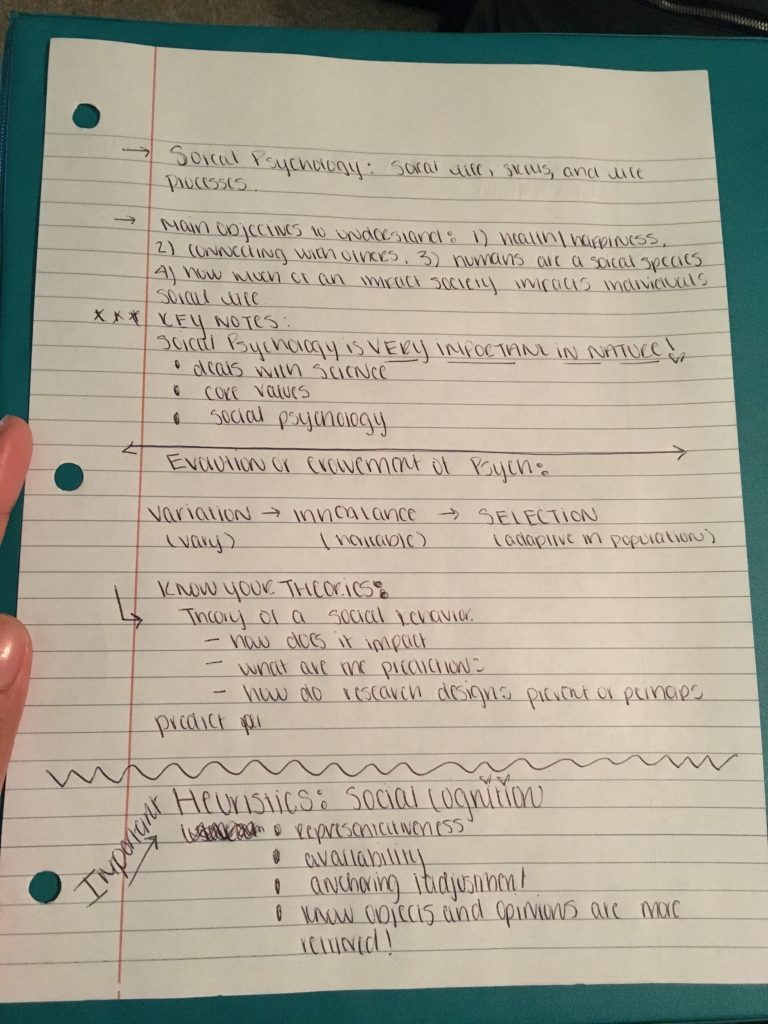 → Social Psychology: social life, skills, and life
processes.
→ Main objectives to understand: 1) health/happiness,
2) connecting with others, 3) humans are a social species
4) how much of an impact society impacts individuals
social life
*** KEY NOTES:
Social Psychology is VERY IMPORTANT IN NATURE!
• deals with science
• core values
• social psychology
Evolution or of Psych:
Variation → inheritance → SELECTION
(vary) (adaptive in population)
KNOW YOUR THEORIES:
Theory of a social behavior.
- how does it impact
- what are the predictions
- how do research designs prevent or perhaps
predict
Important
Heuristics: Social Cognition
• representativeness
• availability
• anchoring /adjustment
• Know objects and opinions are more